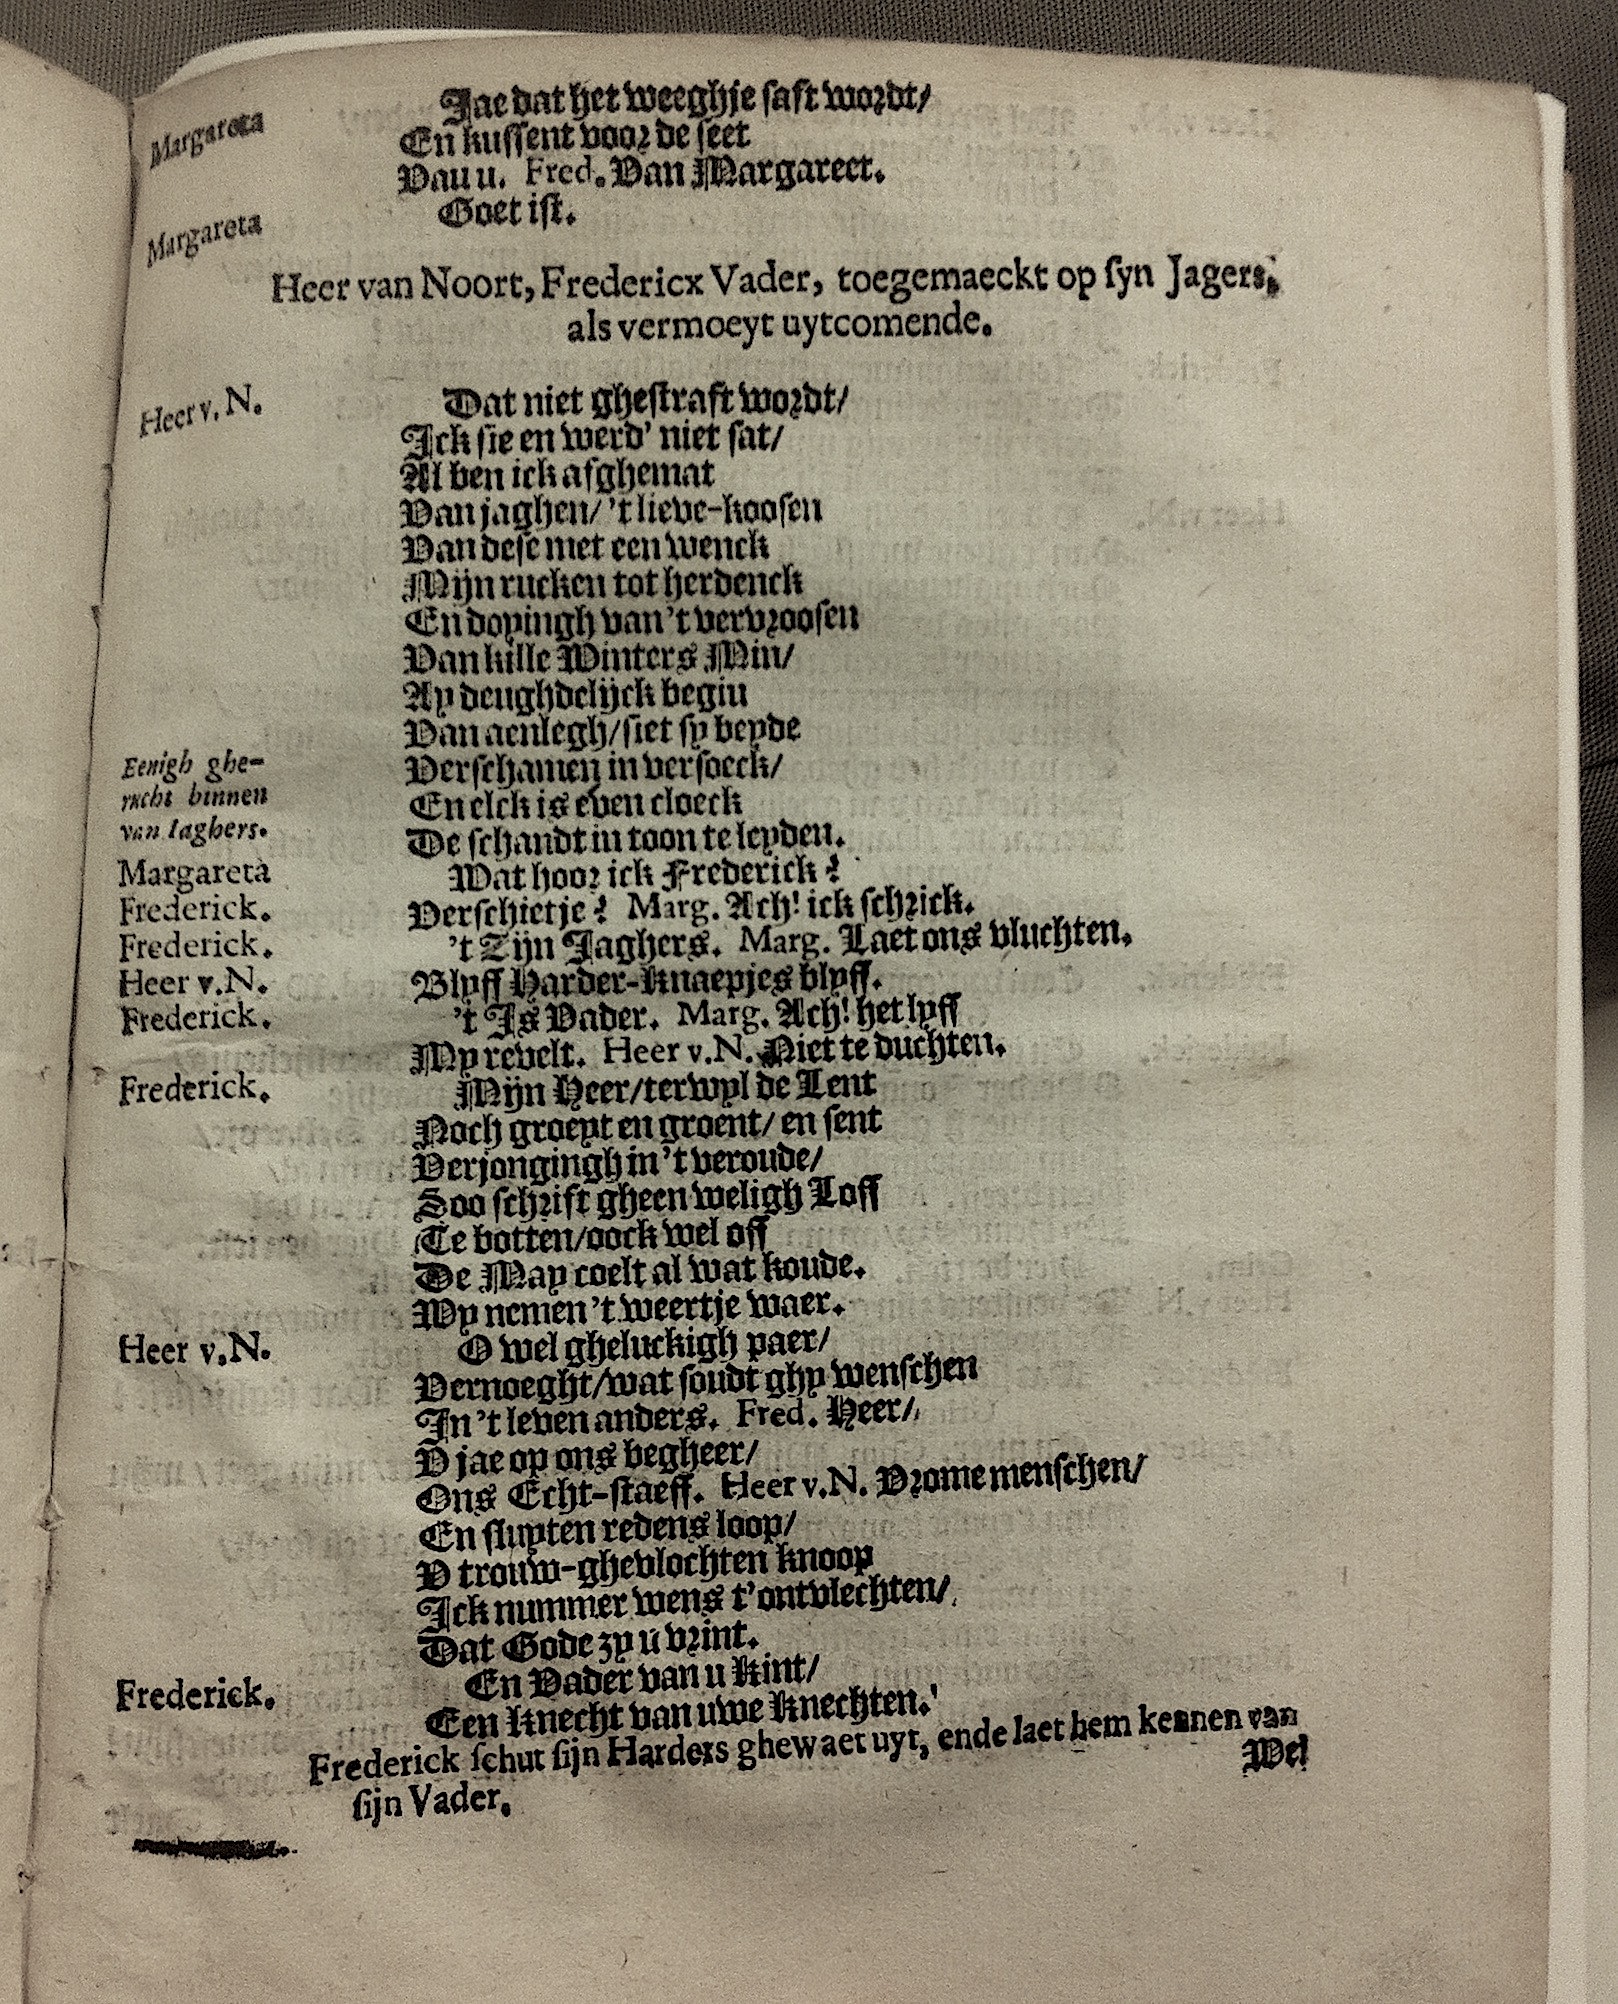 Jae dat het weeghje saft wordt/
Margareta En kussent voor de seet
Vau u. Fred. Van Margareet.
Margareta Goet ist.
Heer van Noort, Fredericx Vader, toegemaeckt op syn Jagers,
als vermoeyt uytcomende.
Heer v. N. Dat niet ghestraft wordt/
Ick sie en werd' niet sat/
Al ben ick afghemat
Van jaghen/ 't lieve-koosen
Van dese met een wenck
Mijn rucken tot herdenck
En dopingh van 't vervroosen
Van kille Winters Min/
Ay deughdelijck begiu
Van aenlegh/ siet sy beyde
Eenigh ghe- Verschamen in versoeck/
rucht binnen En elck is even cloeck
van Iaghers. De schandt in toon te leyden.
Margareta Wat hoor ick Frederick?
Frederick. Verschietje? Marg. Ach! ick schrick.
Frederick. 't Zijn Jaghers. Marg. Laet ons vluchten.
Heer v.N. Blyff Harder-Knaepjes blyff.
Frederick. 't Is Vader. Marg. Ach! het lyff
My revelt. Heer v.N. Niet te duchten.
Frederick. Mijn Heer/ terwyl de Lent
Noch groeyt en groent/ en sent
Verjongingh in 't veroude/
Soo schrift gheen weligh Loff
Te botten/ oock wel off
De May coelt al wat koude.
Wy nemen 't weertje waer.
Heer v.N. O wel gheluckigh paer/
Vernoeght/ wat soudt ghy wenschen
In 't leven anders. Fred. Heer/
V jae op ons begheer/
Ons Echt-staeff. Heer v.N. Vrome menschen/
En sluyten redens loop/
V trouw-ghevlochten knoop
Ick nummer wens t'ontvlechten/
Dat Gode zy u vrint.
Frederick. En Vader van u Kint/
Een Knecht van uwe Knechten.
Frederick schut sijn Harders ghewaet uyt, ende laet hem kennen van
sijn Vader.
Wel